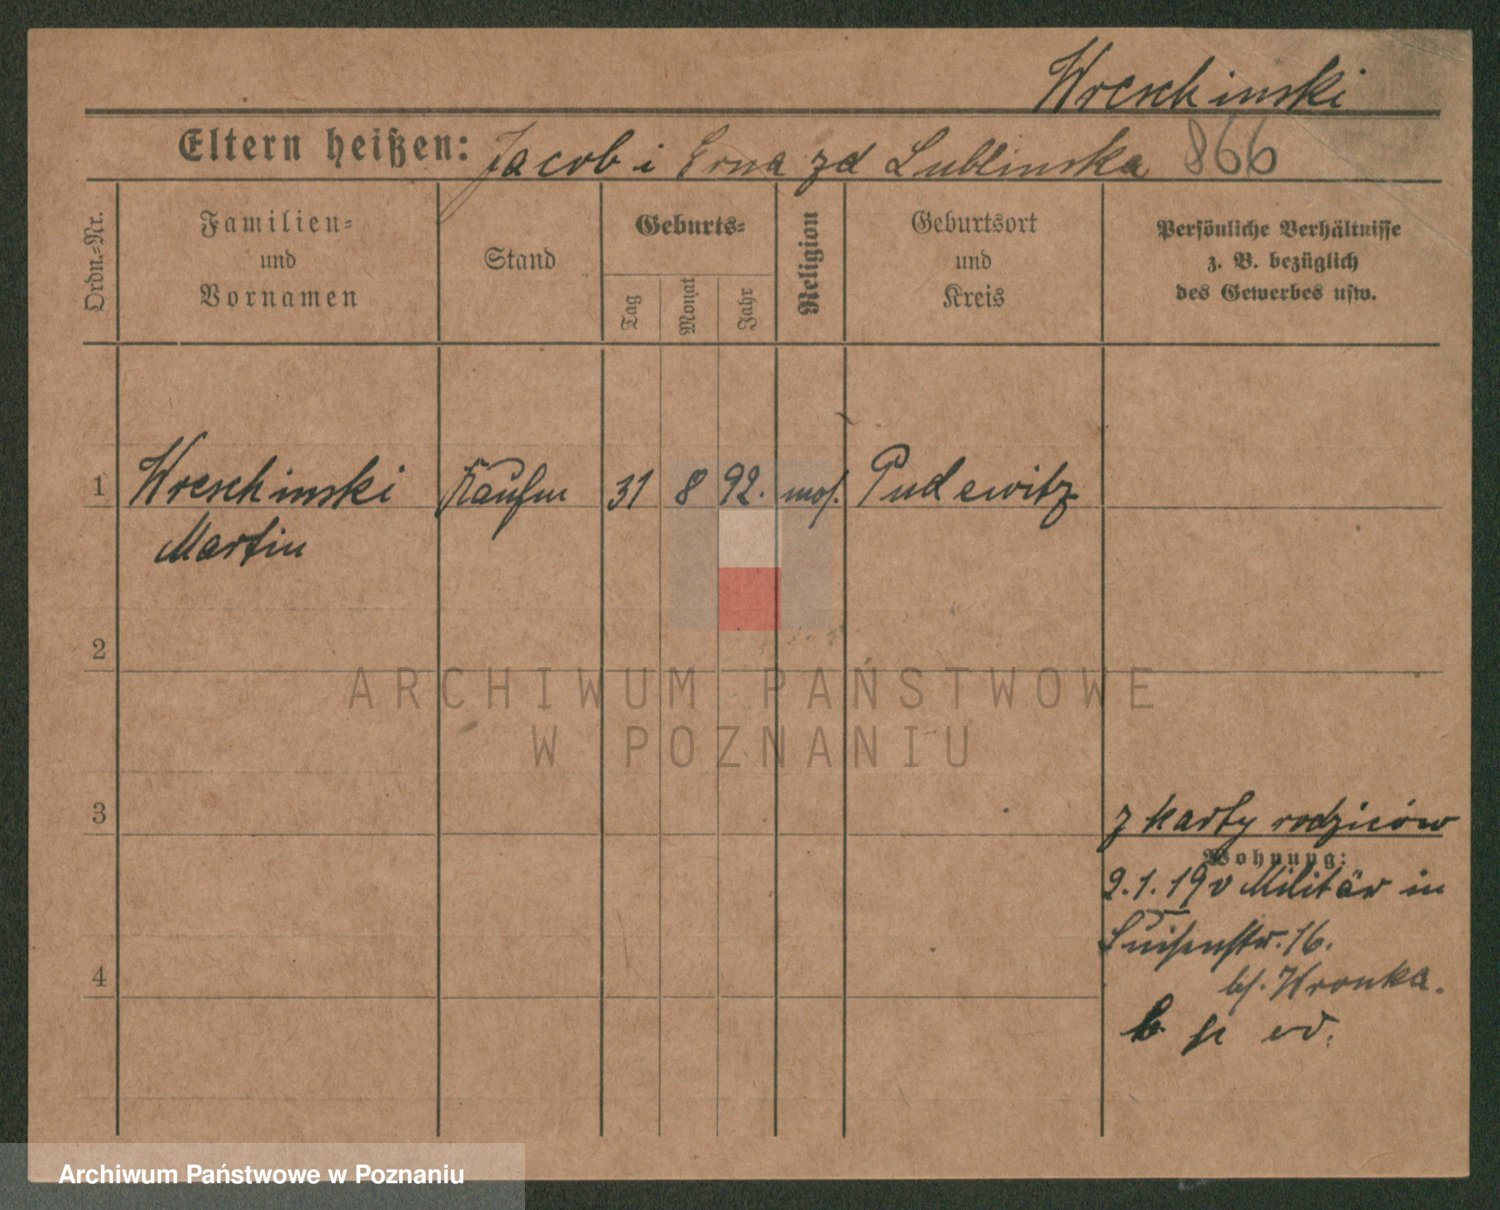 Wreschinski
Eltern heißen: Jacob i Erna zd Lublinska 866
Ordn.-Nr.
Familien-
und
Vornamen
Stand
Geburts-
Tag
Monat
Jahr
Religion
Geburtsort
und
Kreis
Persönliche Verhältnisse
z. B. bezüglich
des Gewerbes usw.
1 Wreschinski Kaufm 31 8 92. mos. Pudewitz
Martin
2
ARCHIWUM PAŃSTWOWE
W POZNANIU
3
z karty rodziców
Wohnung:
2.1.19 v Militär in
Luisenstr. 16.
4
bs. Hronka.
Archiwum Państwowe w Poznaniu